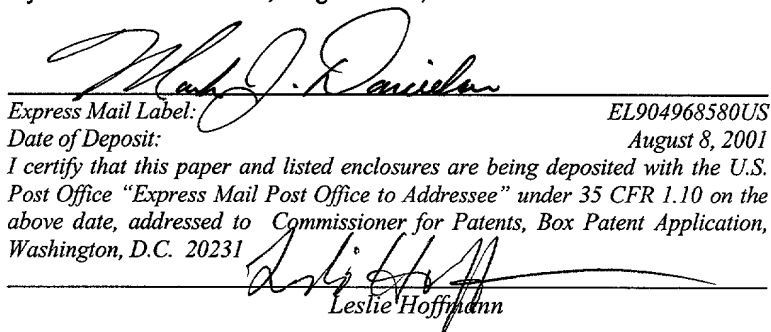 Mark J. Danielson
Express Mail Label: EL904968580US
Date of Deposit: August 8, 2001
I certify that this paper and listed enclosures are being deposited with the U.S.
Post Office “Express Mail Post Office to Addressee” under 35 CFR 1.10 on the
above date, addressed to Commissioner for Patents, Box Patent Application,
Washington, D.C. 20231
Leslie Hoffmann